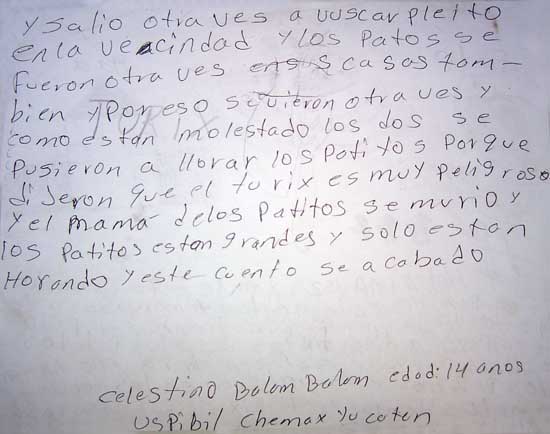 y salio otra ves a vuscar pleito
en la vecindad y los patos se
fueron otra ves en s casas tom-
bien y por eso se vieron otra ves y
como estan molestado los dos se
pusieron a llorar los patitos porque
dijeron que el turix es muy peligroso
y el mamá de los patitos se murio y
los patitos estan grandes y solo estan
llorando y este cuento se a cabado
celestino Balam Balam edad: 14 anos
uspibil chemax yucatan